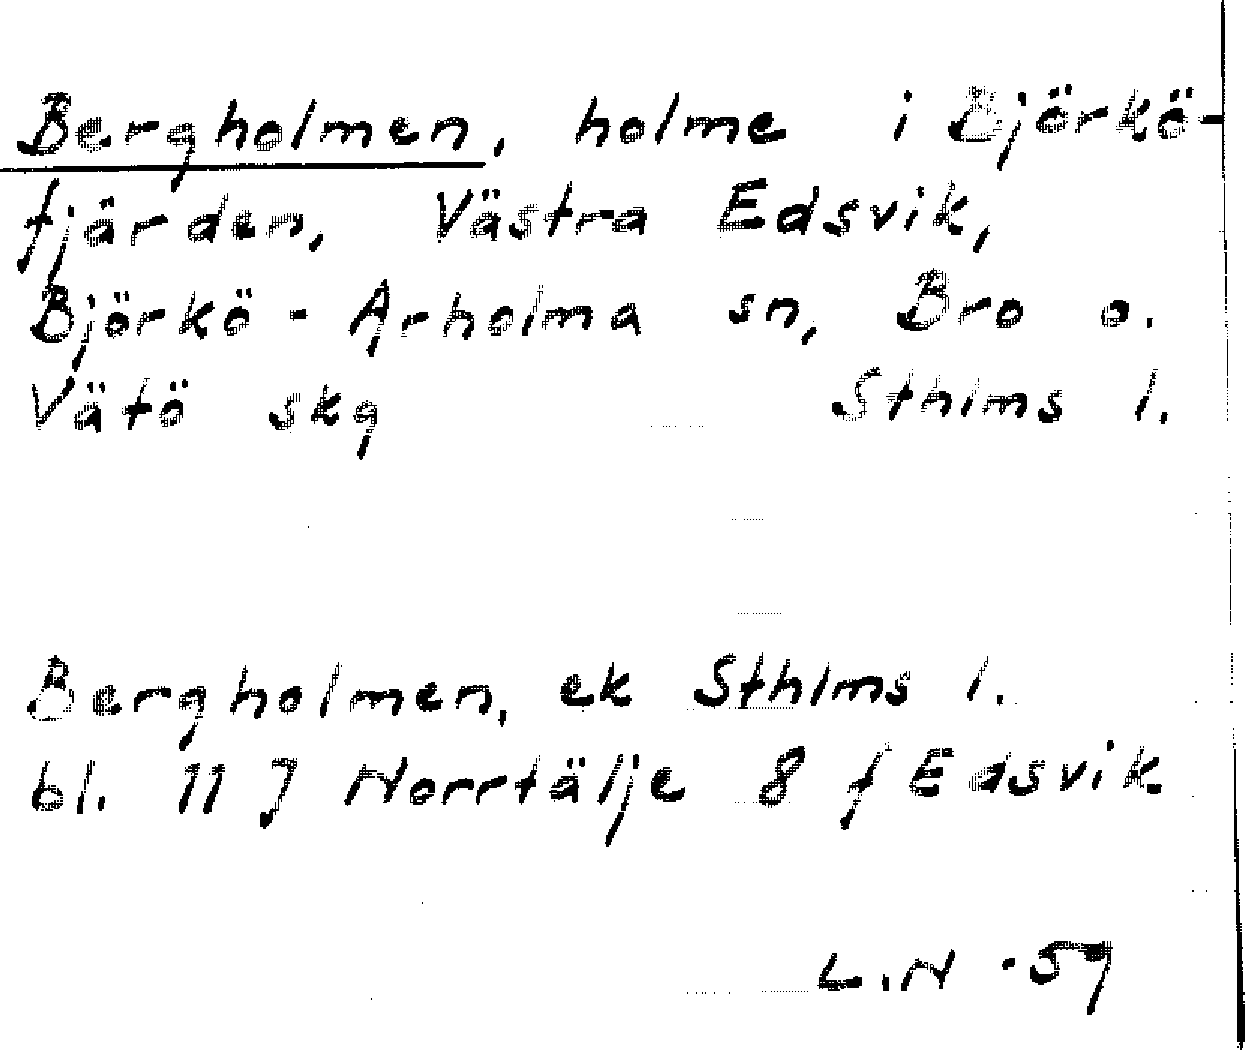 Bergholmen, holme i Björkö-
fjärden, Västra Edsvik,
Björkö-Arholma sn, Bro o.
Vätö skg Sthlms l.
Bergholmen, ek Sthlms l.
bl. 11 J Norrtälje 8 f Edsvik
L.N -59